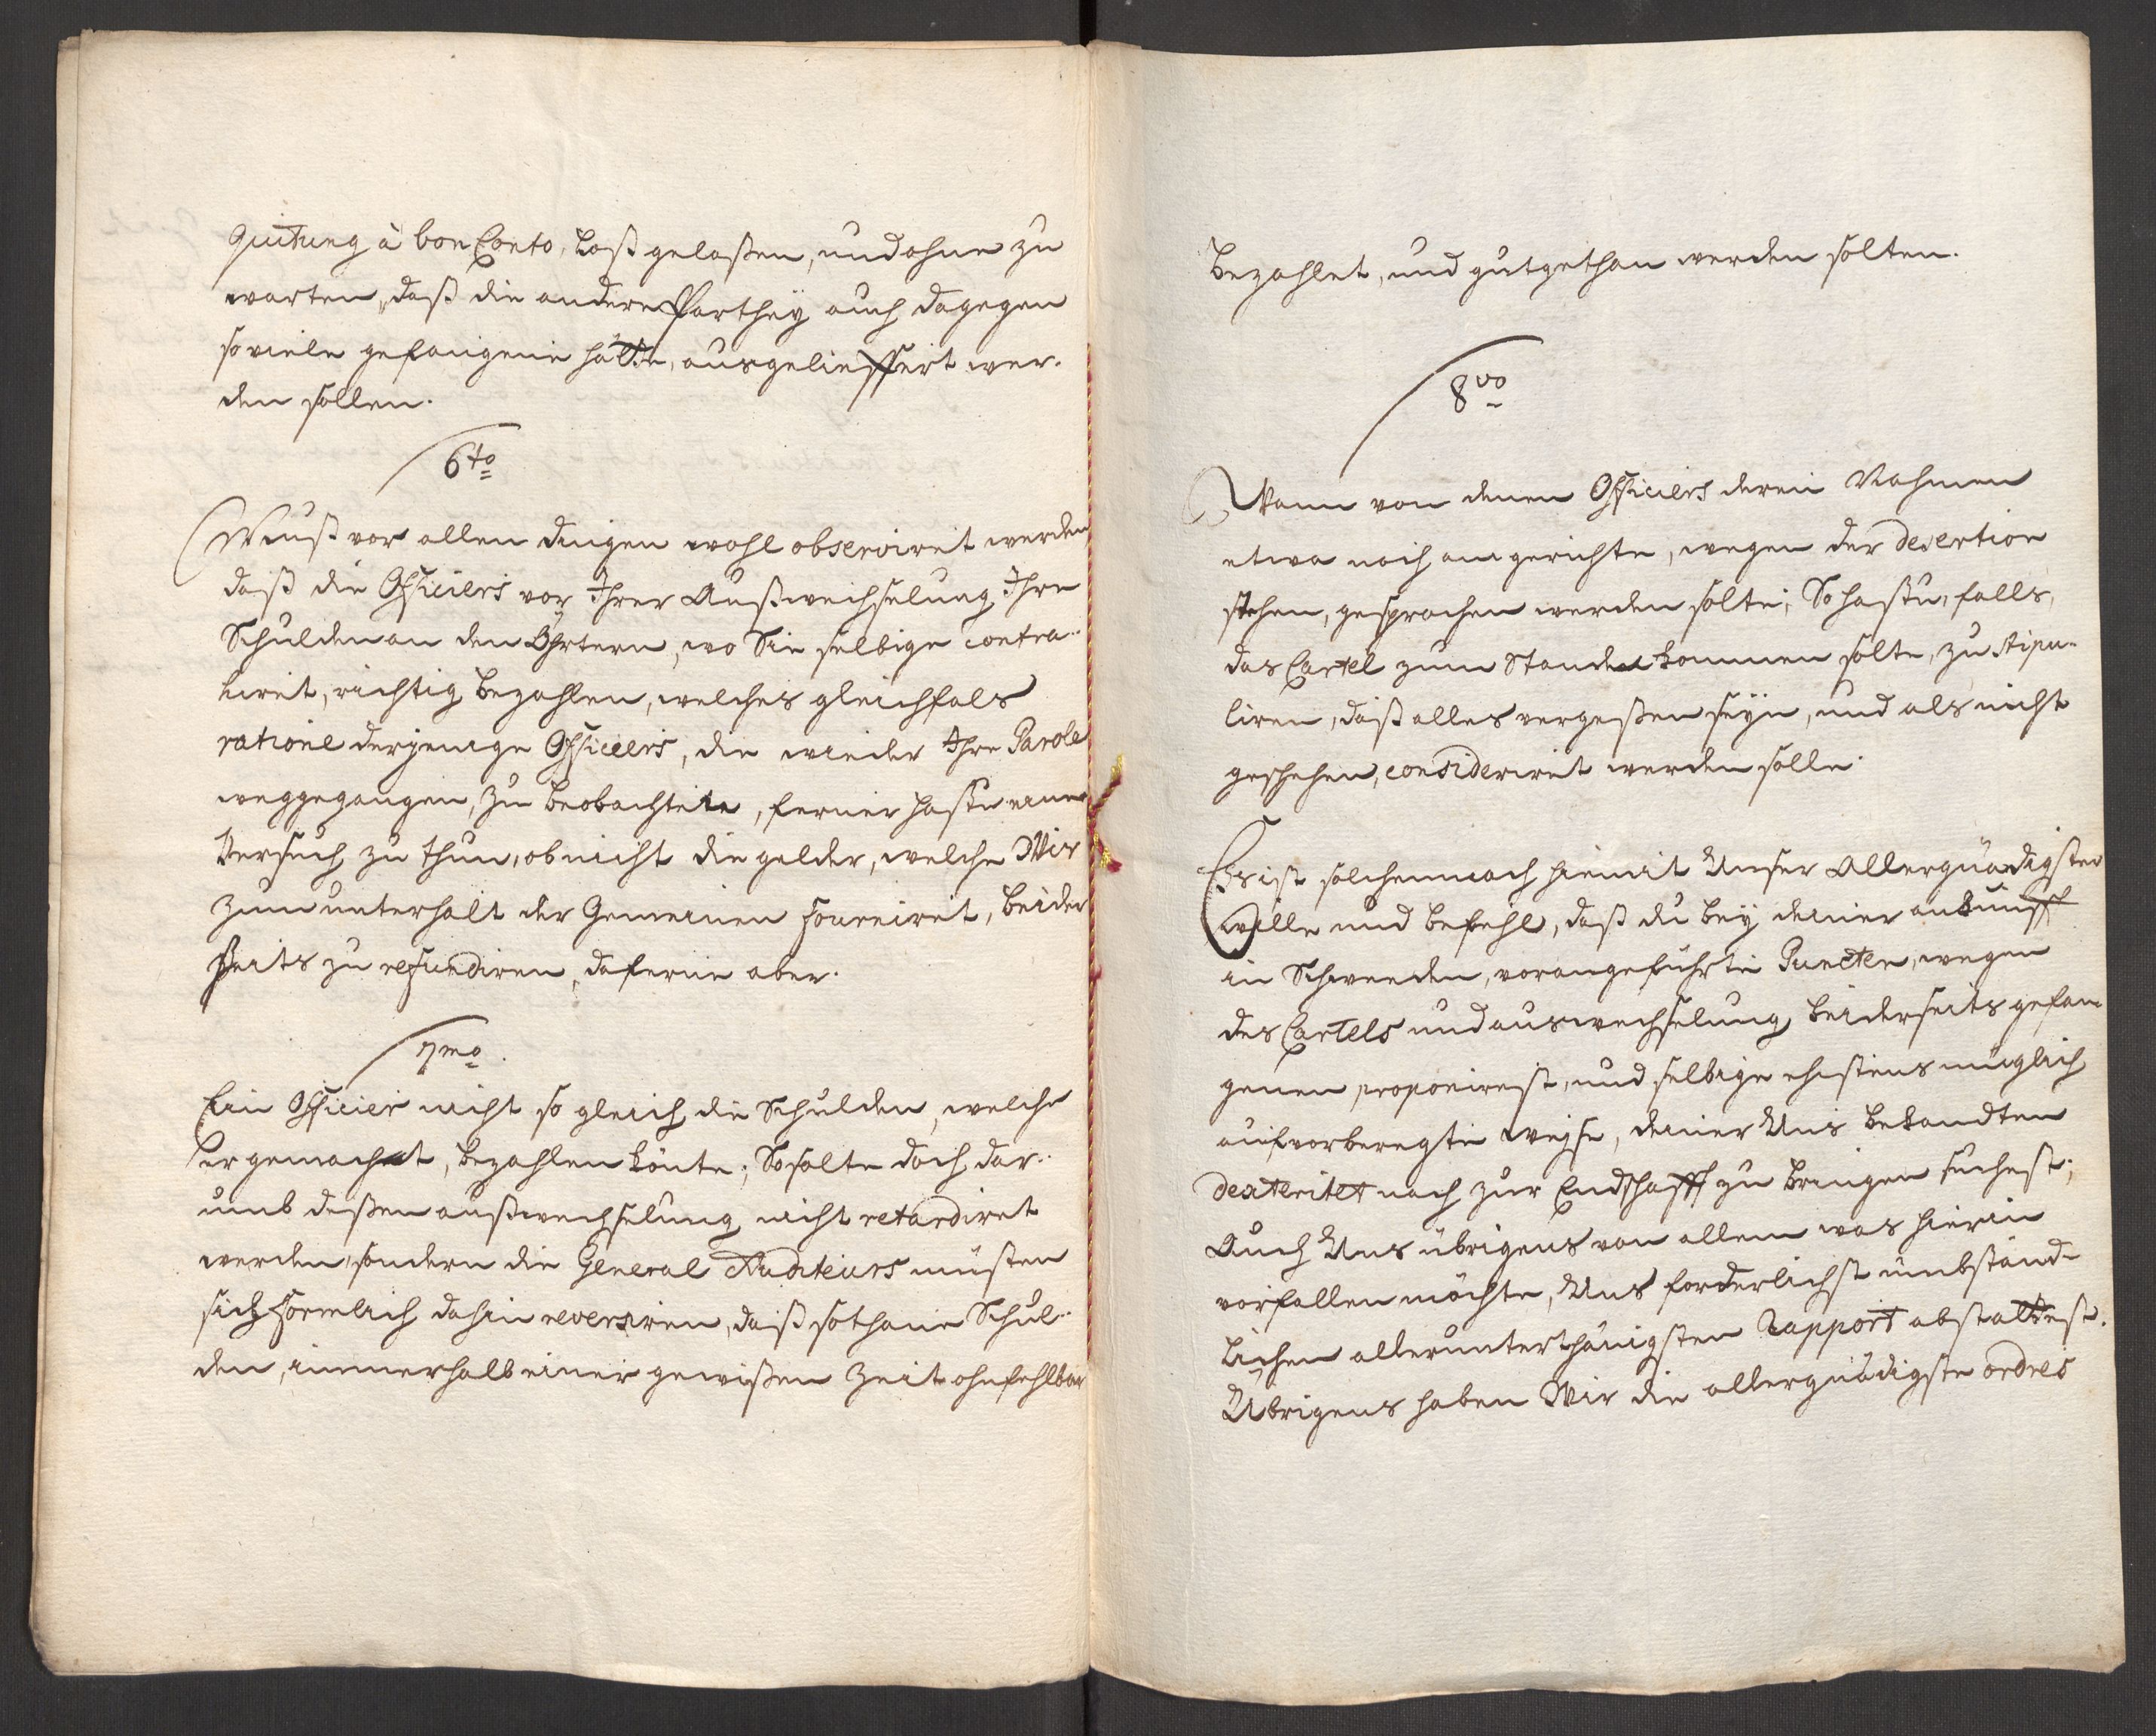 quitung à bon Conto, loß gelaßen, und ohne zu
warten, daß die andere Parthey auch dagegen
so viele gefangene hätte, ausgelieffert wer-
den sollen.
6to
Muß vor allen dingen wohl observiret werden
daß die Officiers vor Ihrer Außwechselung Ihre
Schulden an den Öhrtern, wo Sie selbige contra-
hiret, richtig bezahlen, welches gleichfals
ratione derjenige Officiers, die wieder Ihre Parole
weggegangen, zu beobachten, ferner hastu einen
Versuch zu thun, ob nicht die gelder, welche Wir
zum unterhalt der Gemeinen fourniret, beider
seits zu refundiren, daferne aber.
7mo.
Ein Officier nicht so gleich die Schulden, welche
er gemachet, bezahlen könte; So solte doch dar-
umb deßen außwechselung nicht retardiret
werden, sondern die General Auditeurs müsten
sich formlich dahin reversiren, daß sothane Schul-
den, innerhalb einer gewißen Zeit ohnfehlbar
bezahlet, und gutgethan werden solten.
8vo
Wann von denen Officiers deren Nahmen
etwa noch am gerichte, wegen der desertion
stehen, gesprochen werden solte; So hastu, falls,
das Cartel zum Stande kommen solte, zu stipu-
liren, daß alles vergeßen seyn, und als nicht
geschehen, consideriret werden solle.
Es ist solchemnach hiemit Unser Allergnädigster
wille und befehl, daß du bey deiner ankunfft
in Schweden, vorangeführte Puncten, wegen
des Cartels und auswechselung beiderseits gefan-
genen proponirest, und selbige ehestens müglich
auf vorberegte weise, deiner Uns bekandten
dexteritet nach zur Endschafft zu bringen suchest;
Auch Uns übrigens von allem was hierin
vorfallen möchte, Uns forderlichst ümbständ-
lichen allerunterthänigsten Rapport abstattest.
Übrigens haben Wir die allergnädigste ordres